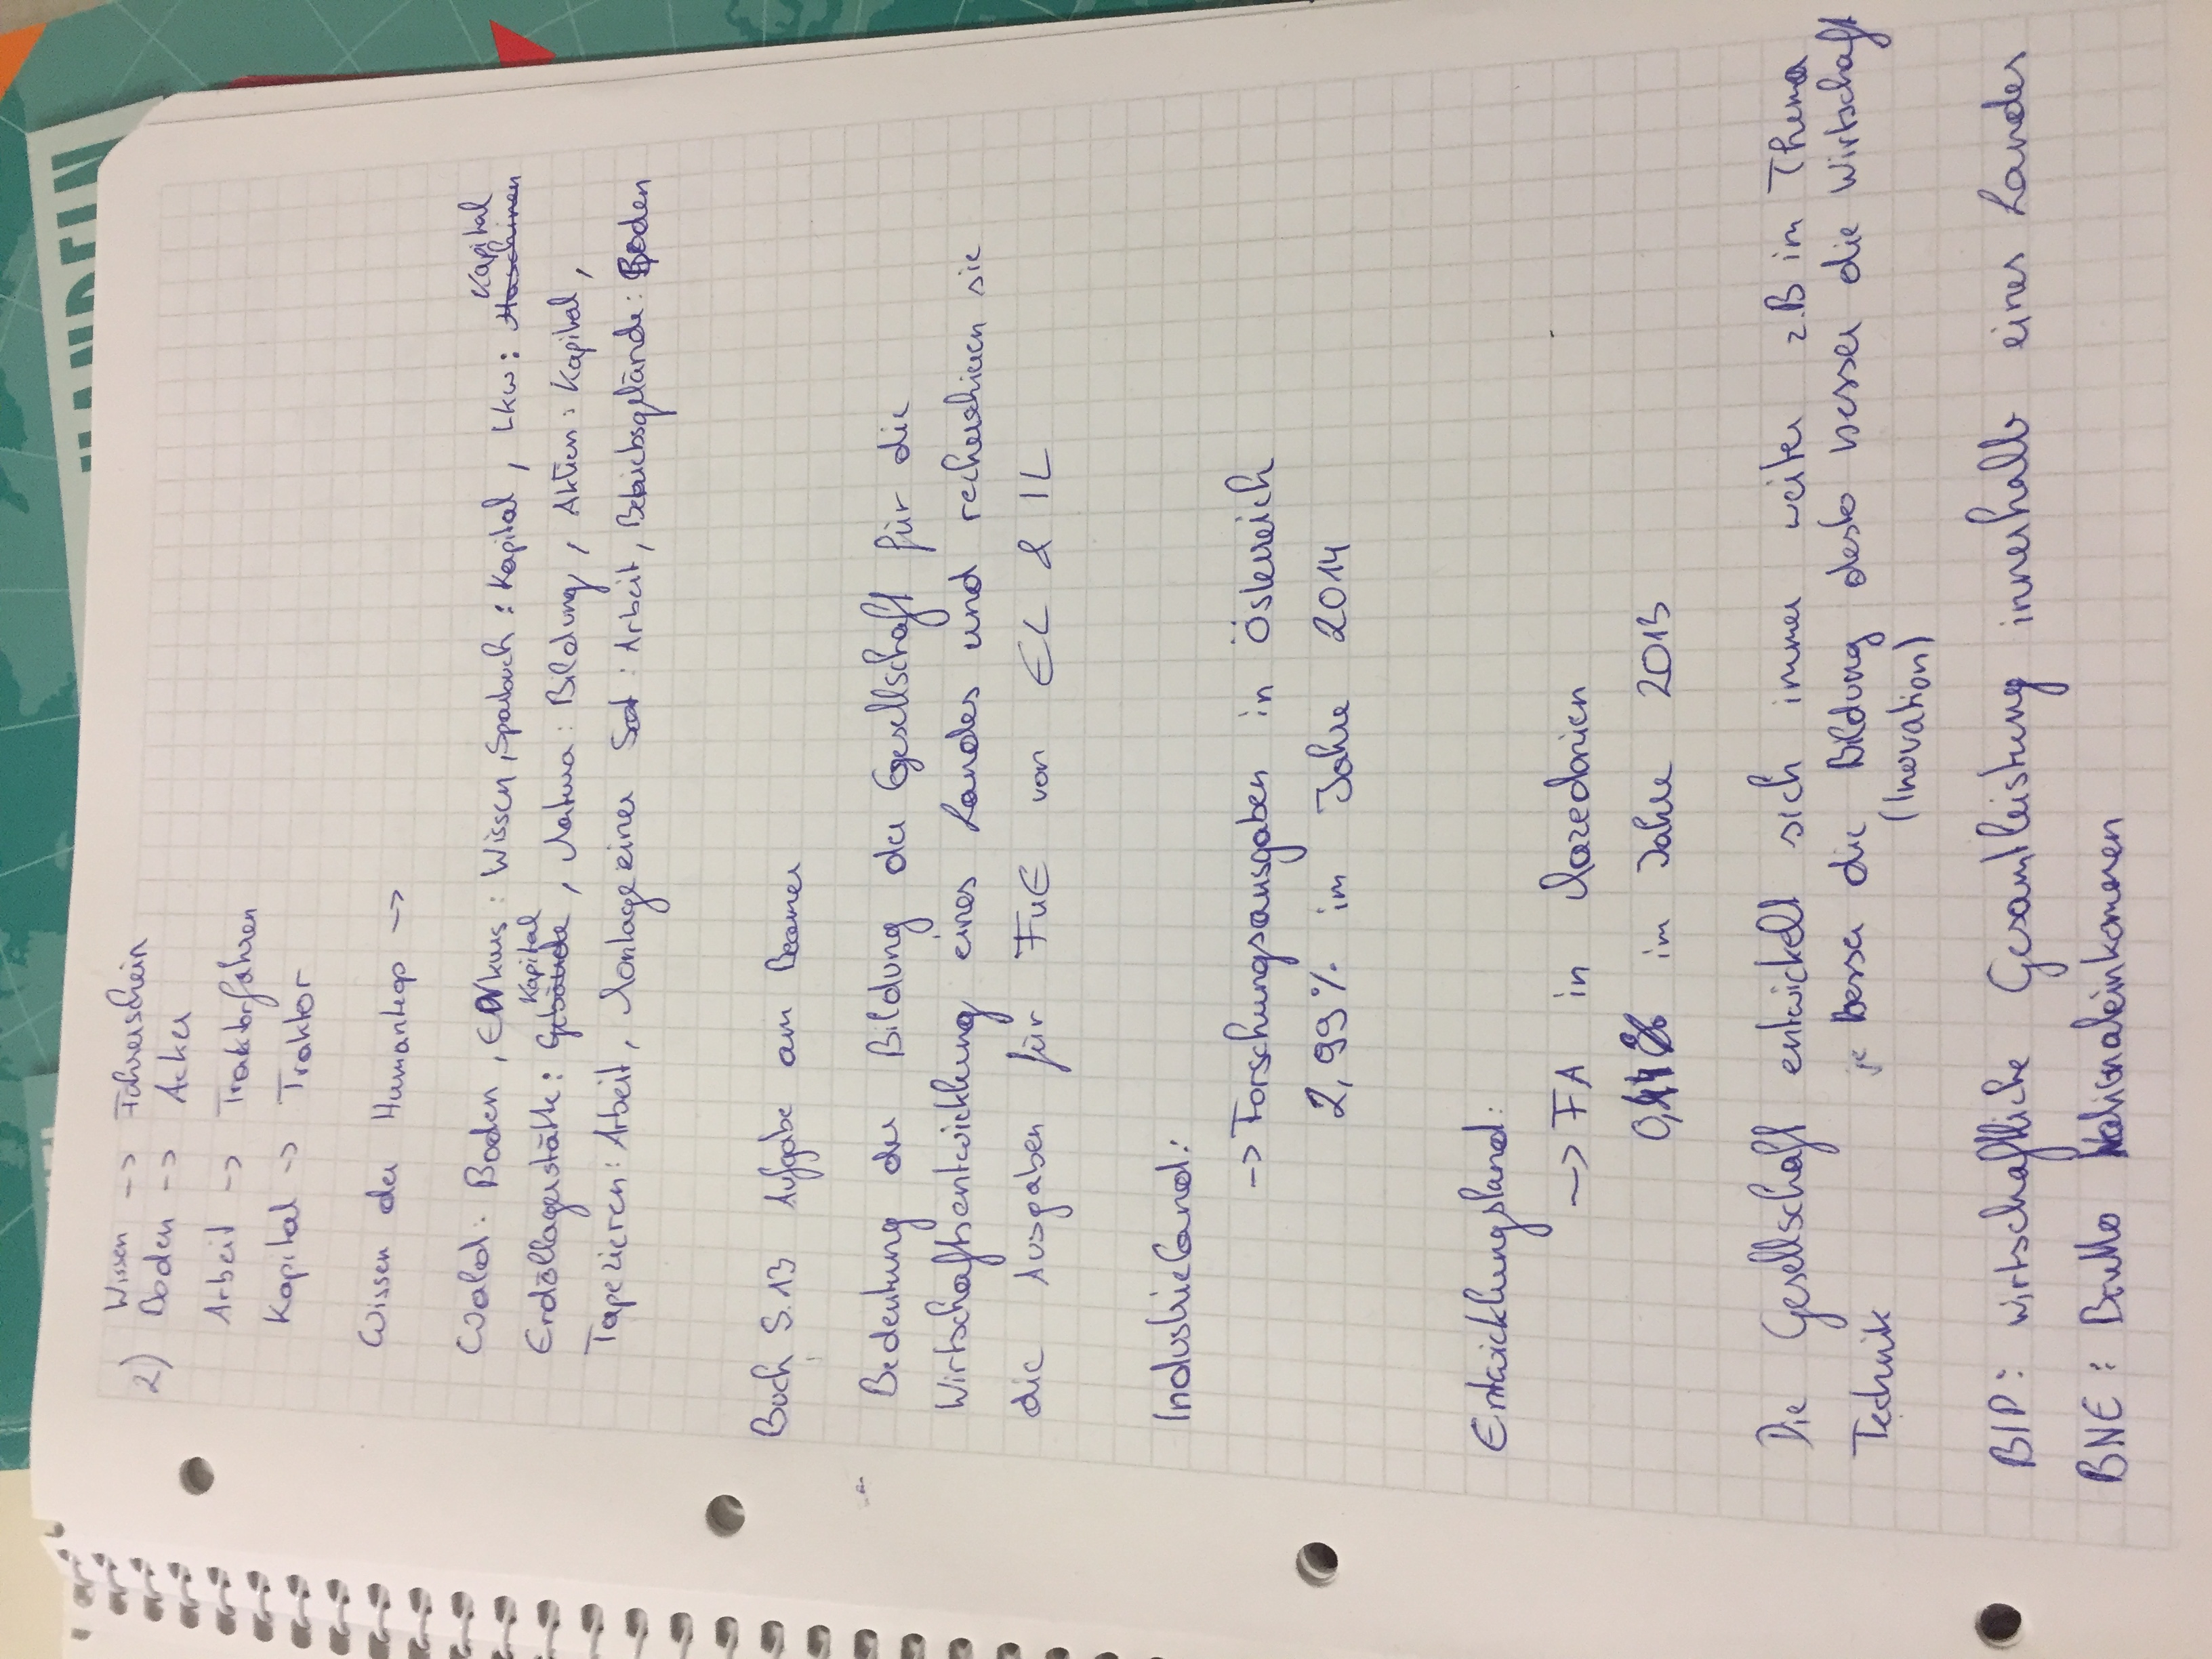 HANDELN
2) Wissen -> Führerschein
Boden -> Acker
Arbeit -> Traktorfahren
Kapital -> Traktor
Wissen der ->
Wald: Boden, EDVkurs: Wissen, Sparbuch: Kapital, Lkw: Maschinen Kapital
Erdöllagerstätte: Gebäude Kapital, Matura: Bildung, Aktien: Kapital,
Tapezieren: Arbeit, Montage einer Sat: Arbeit, Betriebsgelände: Boden
Buch S.13 Aufgabe am Beamer
Bedeutung der Bildung der Gesellschaft für die
Wirtschaftsentwicklung eines Landes und recherchieren sie
die Ausgaben für FuE von EL & IL
Industrieland:
-> Forschungsausgaben in Österreich
2,99% im Jahre 2014
Entwicklungsland:
-> FA in Mazedonien
im Jahre 2013
Die Gesellschaft entwickelt sich immer weiter z.B im Thema
Technik je besser die Bildung desto besser die Wirtschaft
(Inovation)
BIP: wirtschaftliche Gesamtleistung innerhalb eines Landes
BNE: Brutto Nationaleinkommen